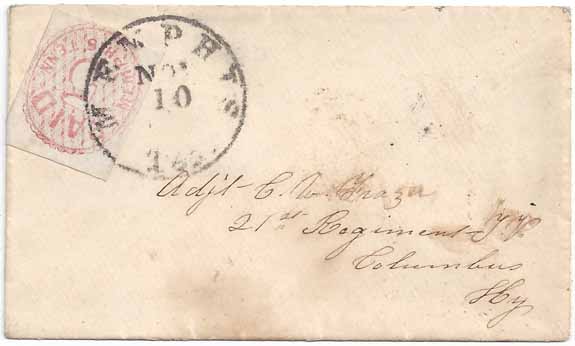 PAID
MEMPHIS, TENN
5
MEMPHIS
NOV
10
Ten.
Adjt C. W. Frazer
21st Regiment
Columbus
Ky